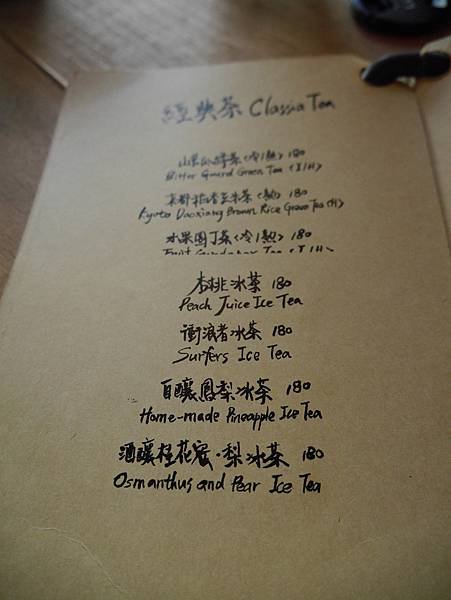 經典茶 Classia Tea
山苦瓜綠茶(冷/熱) 180
Bitter Gourd Green Tea (I/H)
京都稻香玄米茶(熱) 180
Kyoto Daoxiang Brown Rice Green Tea (H)
水果園丁茶(冷/熱) 180
Fruit Gardener Tea (I/H)
杏桃冰茶 180
Peach Juice Ice Tea
衝浪者冰茶 180
Surfers Ice Tea
自釀鳳梨冰茶 180
Home-made Pineapple Ice Tea
酒釀桂花蜜·梨冰茶 180
Osmanthus and Pear Ice Tea